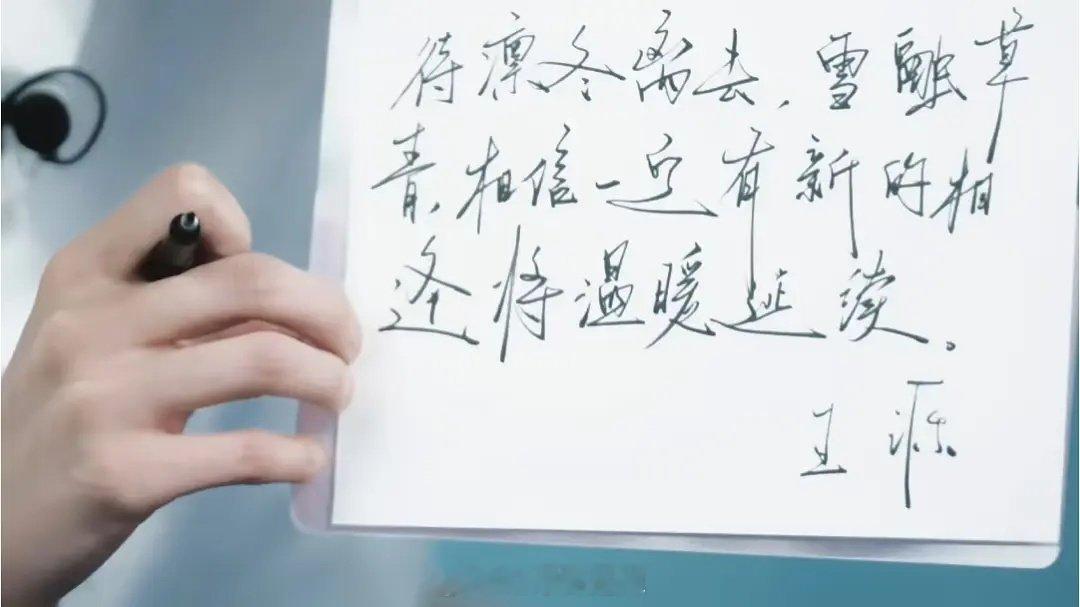 待凛冬离去，雪融草
青，相信一定有新的相
逢将温暖延续。
王源